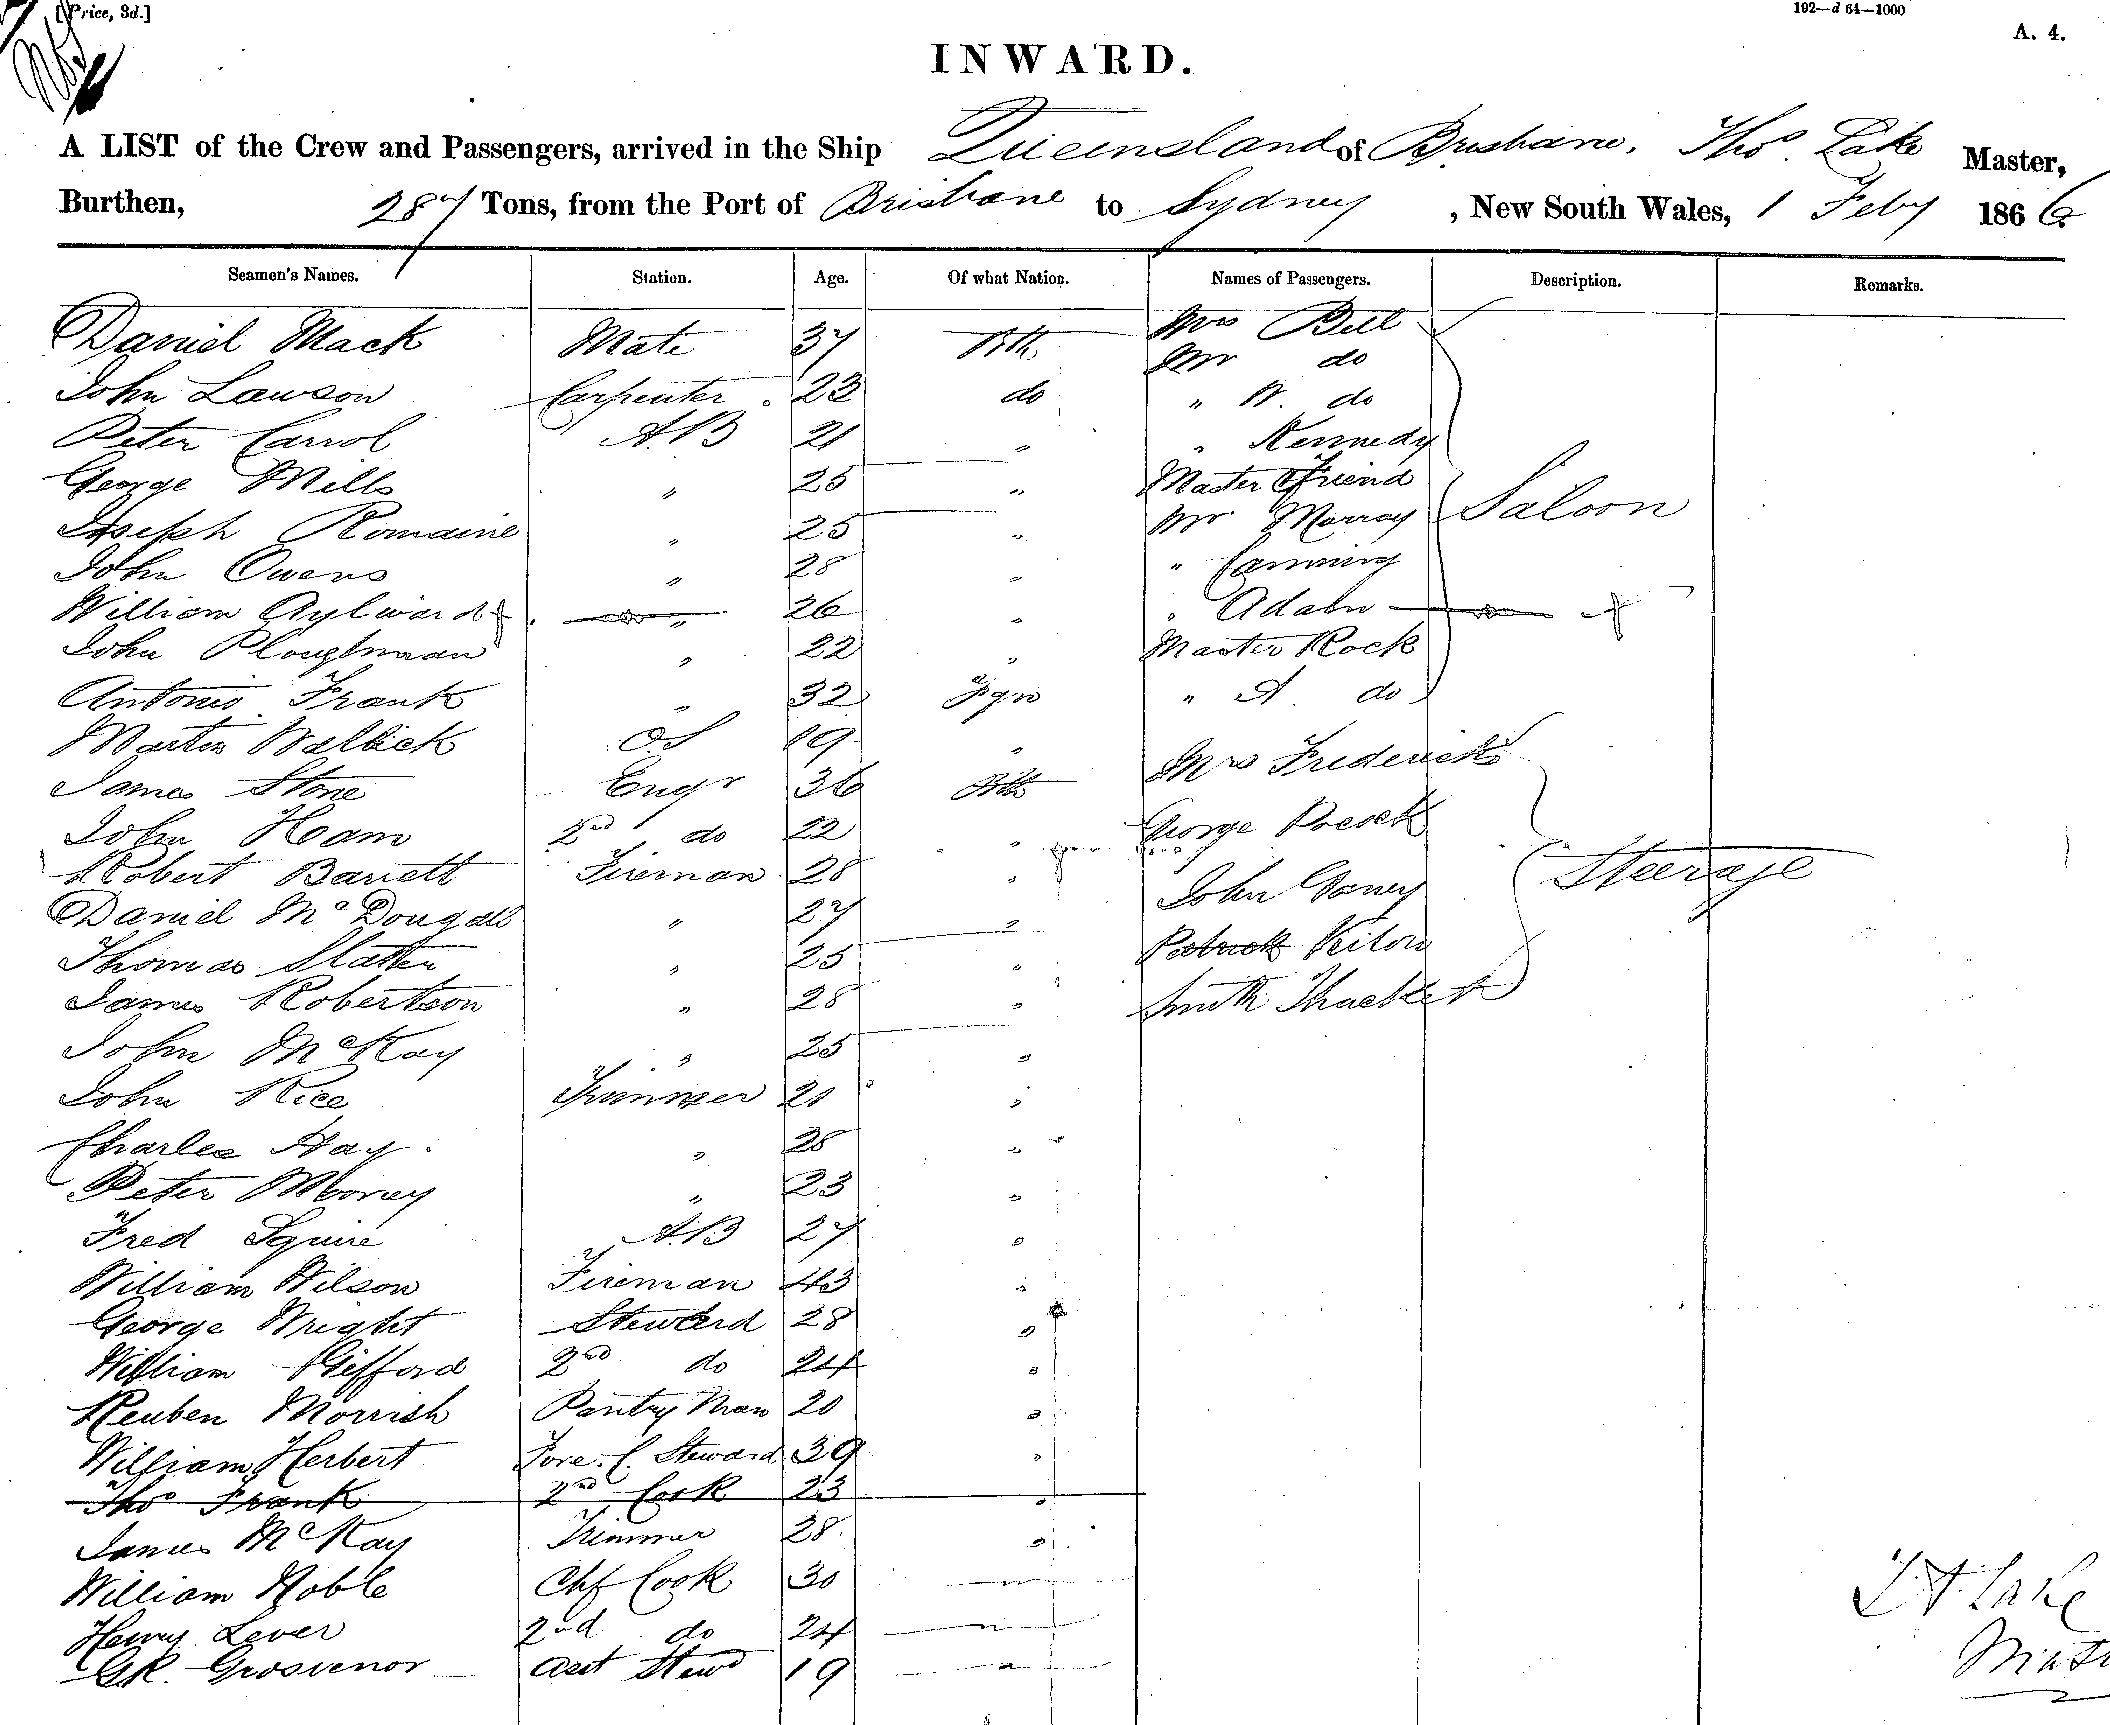 [Price, 3d.]
192—d 64—1000
A. 4.
INWARD.
A LIST of the Crew and Passengers, arrived in the Ship Queensland of Brisbane, Thos. Lake Master,
Burthen, 287 Tons, from the Port of Brisbane to Sydney, New South Wales, 1 Feby 1866
Seamen's Names. Station. Age. Of what Nation. Names of Passengers. Description. Remarks.
Daniel Mack Mate 37 Bth Mrs Bell
John Lawson Carpenter 23 do Mr do
Peter Carrol AB 21 " " W. do
George Mills " 25 " " Kennedy
Joseph Romaine " 25 " Master Friend
John Owens " 28 " Mr Murray Saloon
William Aylward " 26 " " Canning
John Ploughman " 22 " " Adam
Antonio Frank " 32 Fgn Master Rock
Martin Wallick OS 19 " " A. do
James Stone Engr 36 Bth Mrs Fredericks
John Ham 2nd do 22 " George
Robert Barrett Fireman 28 " John Steerage
Daniel McDougall " 27 "
Thomas Slatter " 25 " Patrick
James Robertson " 28 " Smith
John McKay " 25 "
John Rice Trimmer 21 "
Charles Hay " 28 "
Peter Mooney " 23 "
Fred Squire AB 27 "
William Wilson Fireman 43 "
George Wright Steward 28 "
William Gifford 2nd do 24 "
Reuben Morrish Pantry Man 20 "
William Herbert Fore. C. Steward 39 "
Thos Frank 2nd Cook 23 "
James McKay Trimmer 28 "
William Noble Chf Cook 30 "
Henry Lever 2nd do 24 "
GR. Grosvenor asst Stewd 19 "
Lake